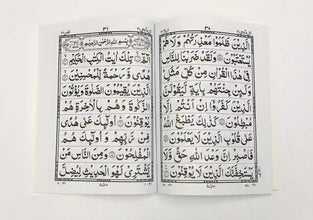 الَّذِيْنَ ظَلَمُوْا مَعْذِرَتُهُمْ وَلَا هُمْ
يُسْتَعْتَبُوْنَ ۝ وَلَقَدْ ضَرَبْنَا لِلنَّاسِ
فِيْ هٰذَا الْقُرْاٰنِ مِنْ كُلِّ مَثَلٍ
وَلَئِنْ جِئْتَهُمْ بِاٰيَةٍ لَّيَقُوْلَنَّ
الَّذِيْنَ كَفَرُوْٓا اِنْ اَنْتُمْ اِلَّا
مُبْطِلُوْنَ ۝ كَذٰلِكَ يَطْبَعُ اللّٰهُ
عَلٰى قُلُوْبِ الَّذِيْنَ لَا يَعْلَمُوْنَ ۝
فَاصْبِرْ اِنَّ وَعْدَ اللّٰهِ حَقٌّ وَّلَا
يَسْتَخِفَّنَّكَ الَّذِيْنَ لَا يُوْقِنُوْنَ ۝
بِسْمِ اللّٰهِ الرَّحْمٰنِ الرَّحِيْمِ
الٓمّٓ ۝ تِلْكَ اٰيٰتُ الْكِتٰبِ الْحَكِيْمِ ۝
هُدًى وَّرَحْمَةً لِّلْمُحْسِنِيْنَ ۝
الَّذِيْنَ يُقِيْمُوْنَ الصَّلٰوةَ وَيُؤْتُوْنَ
الزَّكٰوةَ وَهُمْ بِالْاٰخِرَةِ هُمْ
يُوْقِنُوْنَ ۝ اُولٰٓئِكَ عَلٰى هُدًى
مِّنْ رَّبِّهِمْ وَاُولٰٓئِكَ هُمُ
الْمُفْلِحُوْنَ ۝ وَمِنَ النَّاسِ مَنْ
يَّشْتَرِيْ لَهْوَ الْحَدِيْثِ لِيُضِلَّ